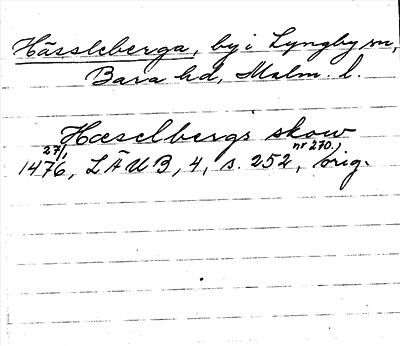 Hässleberga, by i Lyngby sn,
Bara hd, Malm. l.
Hæselbergs skow
1476 27/1, LÄUB, 4, s. 252 (nr 270), orig.